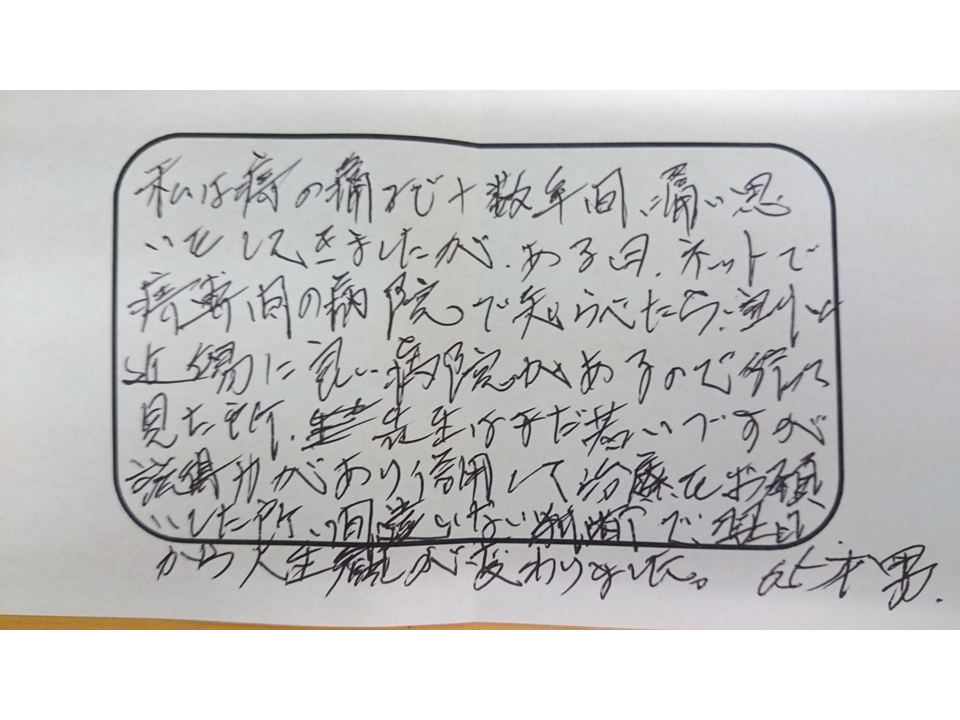 私は痔の痛みで十数年間、痛い思
いをしてきましたが、ある日、ネットで
痔専門の病院で知らべたら、割と
近場に良い病院があるので行って
見た所、先生はまだ若いですが
説得力があり信用して治療をお願
いした所、間違いない判断で、
から人生観が変わりました。 男.